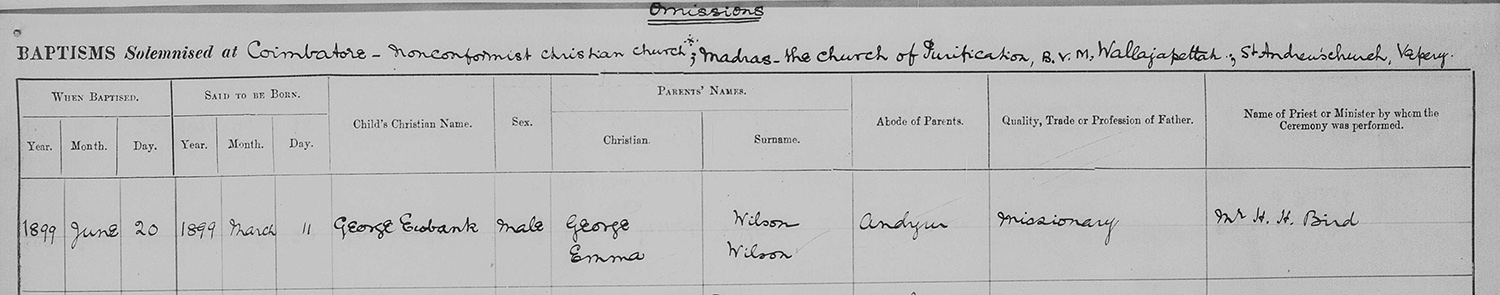 Omissions
BAPTISMS Solemnised at Coimbatore - Nonconformist Christian Church*; Madras - the Church of Purification, B.V.M, Wallajapettah; St Andrew's Church, Vepery.
WHEN BAPTISED. SAID TO BE BORN. Child's Christian Name. Sex. PARENTS' NAMES. Abode of Parents. Quality, Trade or Profession of Father. Name of Priest or Minister by whom the
Ceremony was performed.
Year. Month. Day. Year. Month. Day. Christian. Surname.
1899 June 20 1899 March 11 George Ewbank Male George Wilson Andyur Missionary Mr H. H. Bird
Emma Wilson